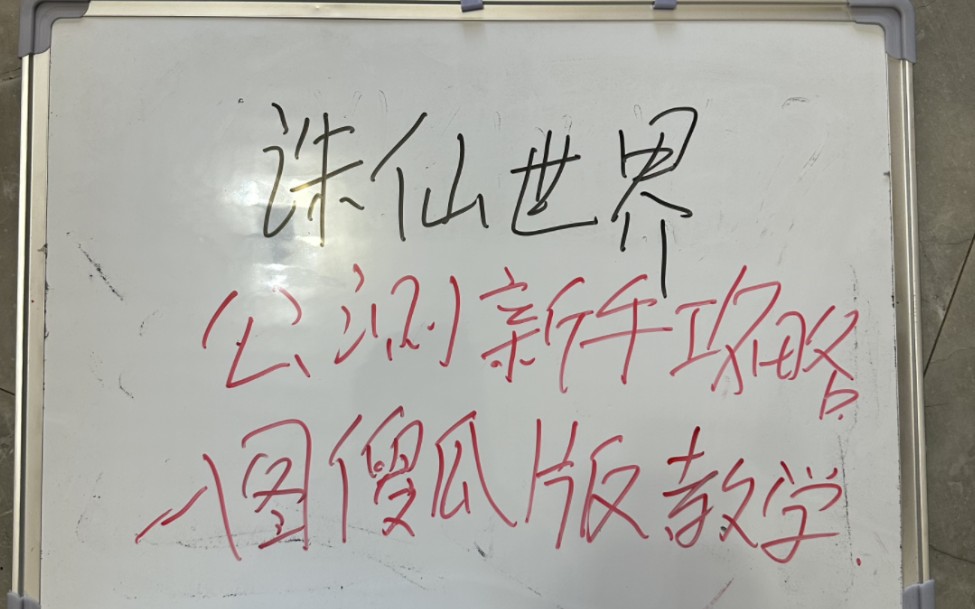 诛仙世界
公测新手攻略
入图傻瓜版教学.